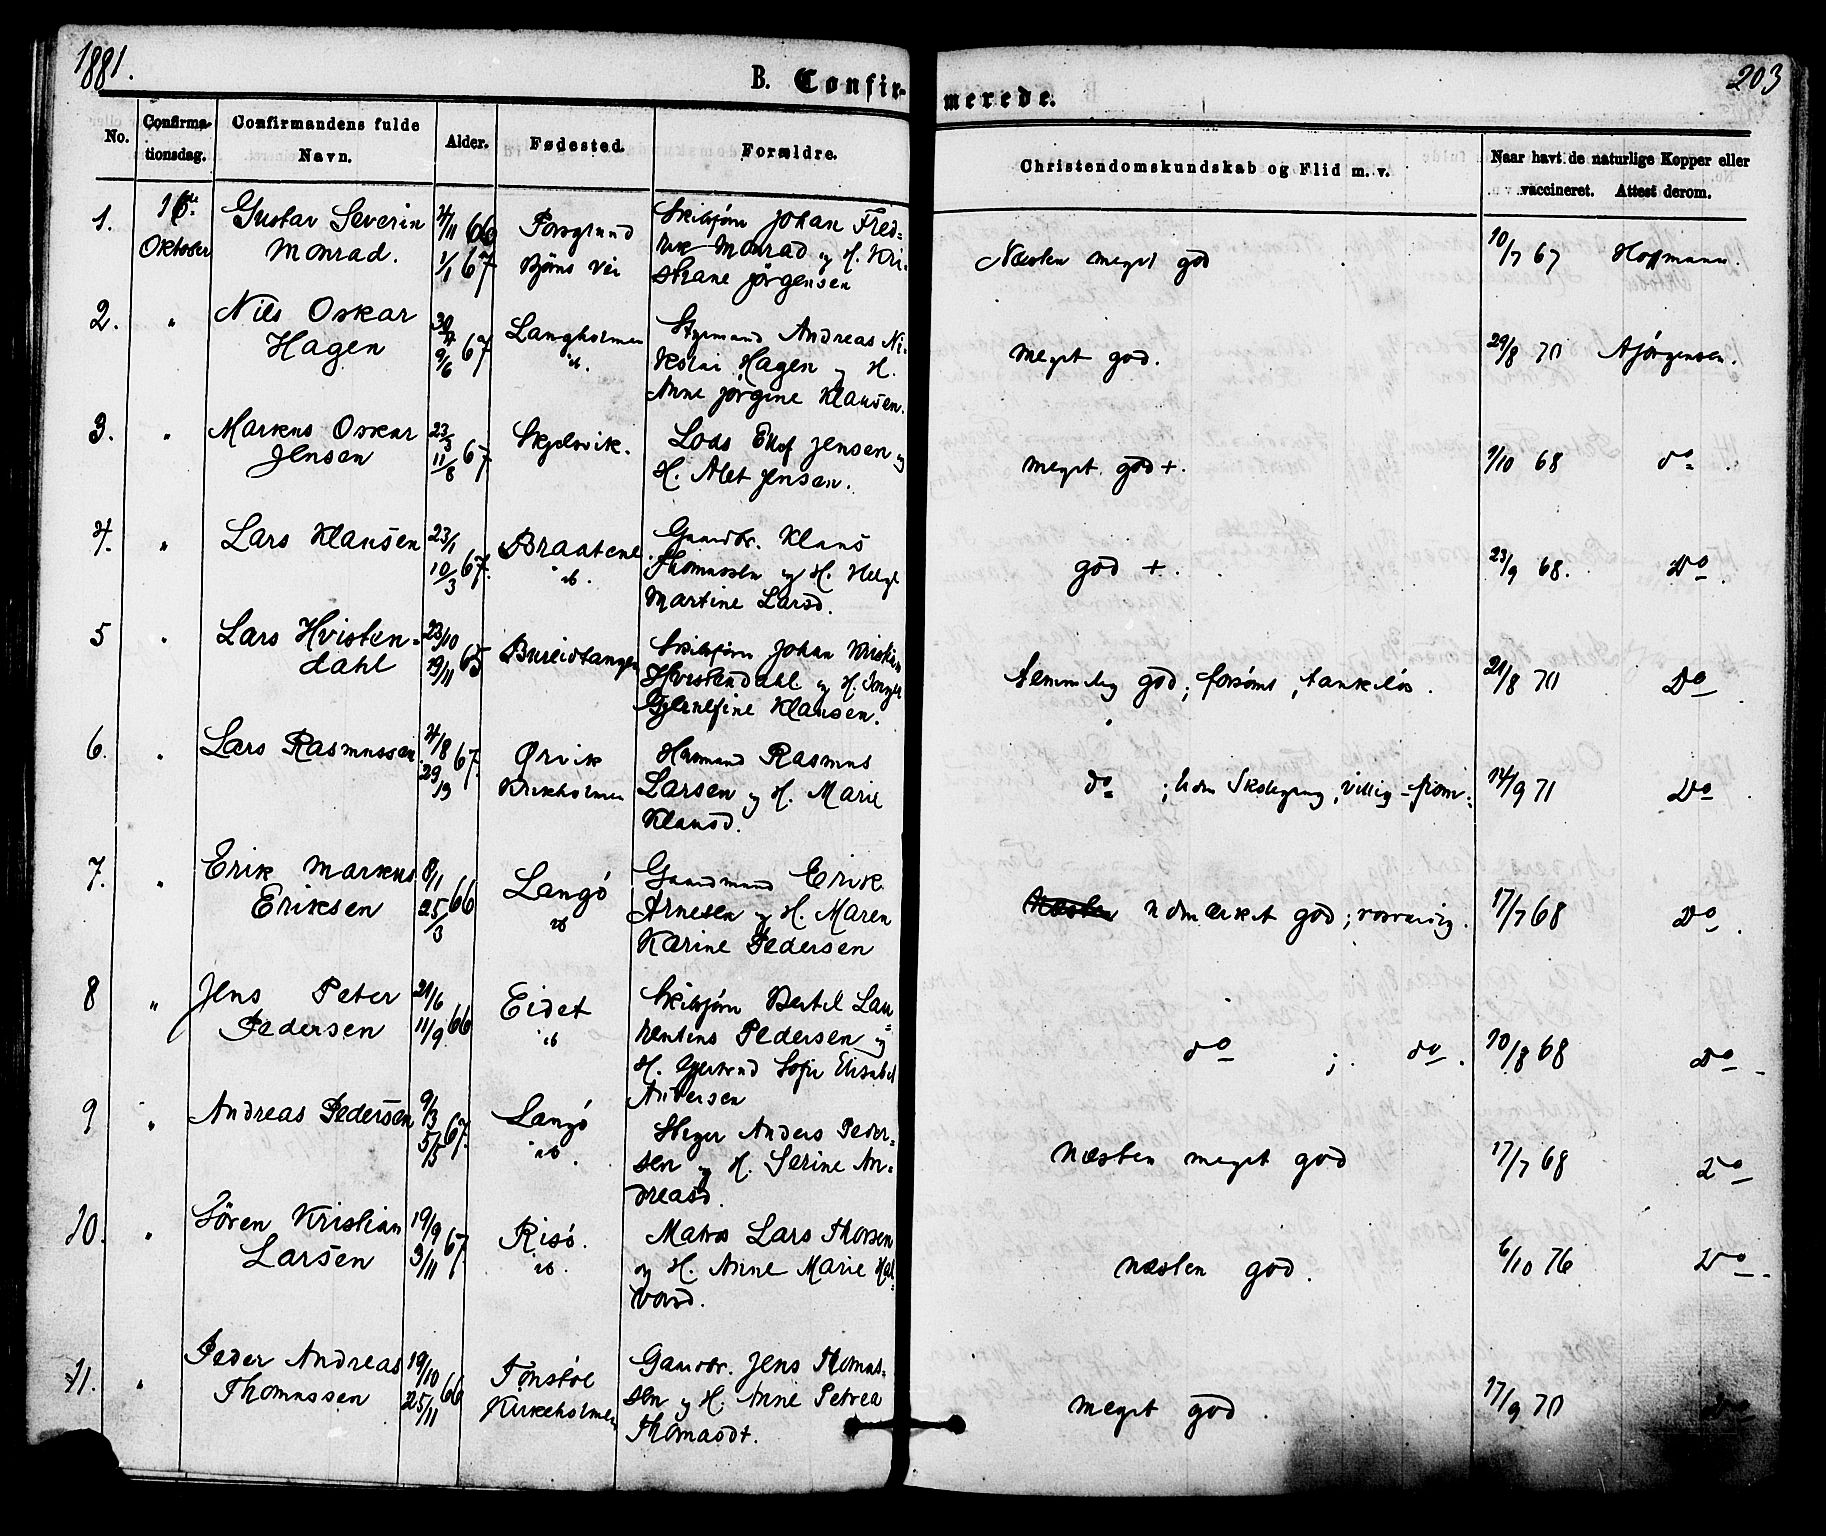 1881.
203
B. Confir-
merede.
No.
Confirma-
tionsdag.
Confirmandens fulde
Navn.
Alder.
Fødested.
Forældre.
Christendomskundskab og Flid m. v.
Naar havt de naturlige Kopper eller
vaccineret. Attest derom.
1.
Oktober
Gustav Severin
Monrad.
4/11 66
1/1 67
Porsgrund
Björns Vei
Skibsförer Johan Fred=
rik Monrad og H. Kri-
stiane Jörgensen
Næsten meget god
10/7 67 Hoffmann.
2. "
Nils Oskar
Hagen
30/4
9/6 67
Langholmen
ib.
Styrmand Andreas Ni-
kolai Hagen og H.
Anne Jörgine Klausen.
meget god.
29/8 70 A Jörgensen.
3. "
Markus Oskar
Jensen
23/3
11/8 67
Skjelsvik.
Lods Ellef Jensen og
H. Alet Jensen.
meget god +.
1/10 68 do.
4. "
Lars Klausen
23/1
10/3 67.
Braatene
ib.
Gaardbr. Klaus
Thomassen og H. Helge
Martine Larsd.
god +.
23/9 68. Do.
5 "
Lars Hvisten=
dahl
23/10
19/11 65
Bureidtangen
Skibsförer Johan Kristian
Hvistendahl og H. Inger
Klausen.
temmelig god; forsömt, tanklös.
21/8 70 Do
6. "
Lars Rasmussen
4/8 67.
29/9
Örvik
Kirkholmen
Huusmand Rasmus
Larsen og H. Marie
Klausd.
do ; villig - from.
14/9 71 Do
7. "
Erik Markus
Eriksen
8/1
25/3 66
Langö
ib
Gaardmand Erik
Arnesen og H. Maren
Karine Pedersen
Næsten udmærket god;
17/7 68 Do.
8 "
Jens Peter
Pedersen
21/6
11/9 66
Eidet
ib
Skibsförer Bertel Lau=
rentius Pedersen og
H. Gjertrud Sofie Elisabet
Andersen
do ; do.
10/8 68 Do
9 "
Andreas Pedersen
9/3
5/5 67.
Langö
ib.
Anders Peder=
sen og H. Serine An=
dreasd.
Næsten meget god
17/7 68 Do
10. "
Sören Kristian
Larsen
19/9
3/11 67.
Risö.
ib.
Matros Lars Thorsen
og H. Anne Marie Hal-
vorsd.
næsten god.
6/10 76 Do.
11. "
Peder Andreas
Thomassen
19/10
25/11 66
Fonstöl
Kirkeholmen
Gaardbr. Jens Thomas=
sen og H. Anne Petrea
Thomasdt.
meget god.
17/9 70 Do